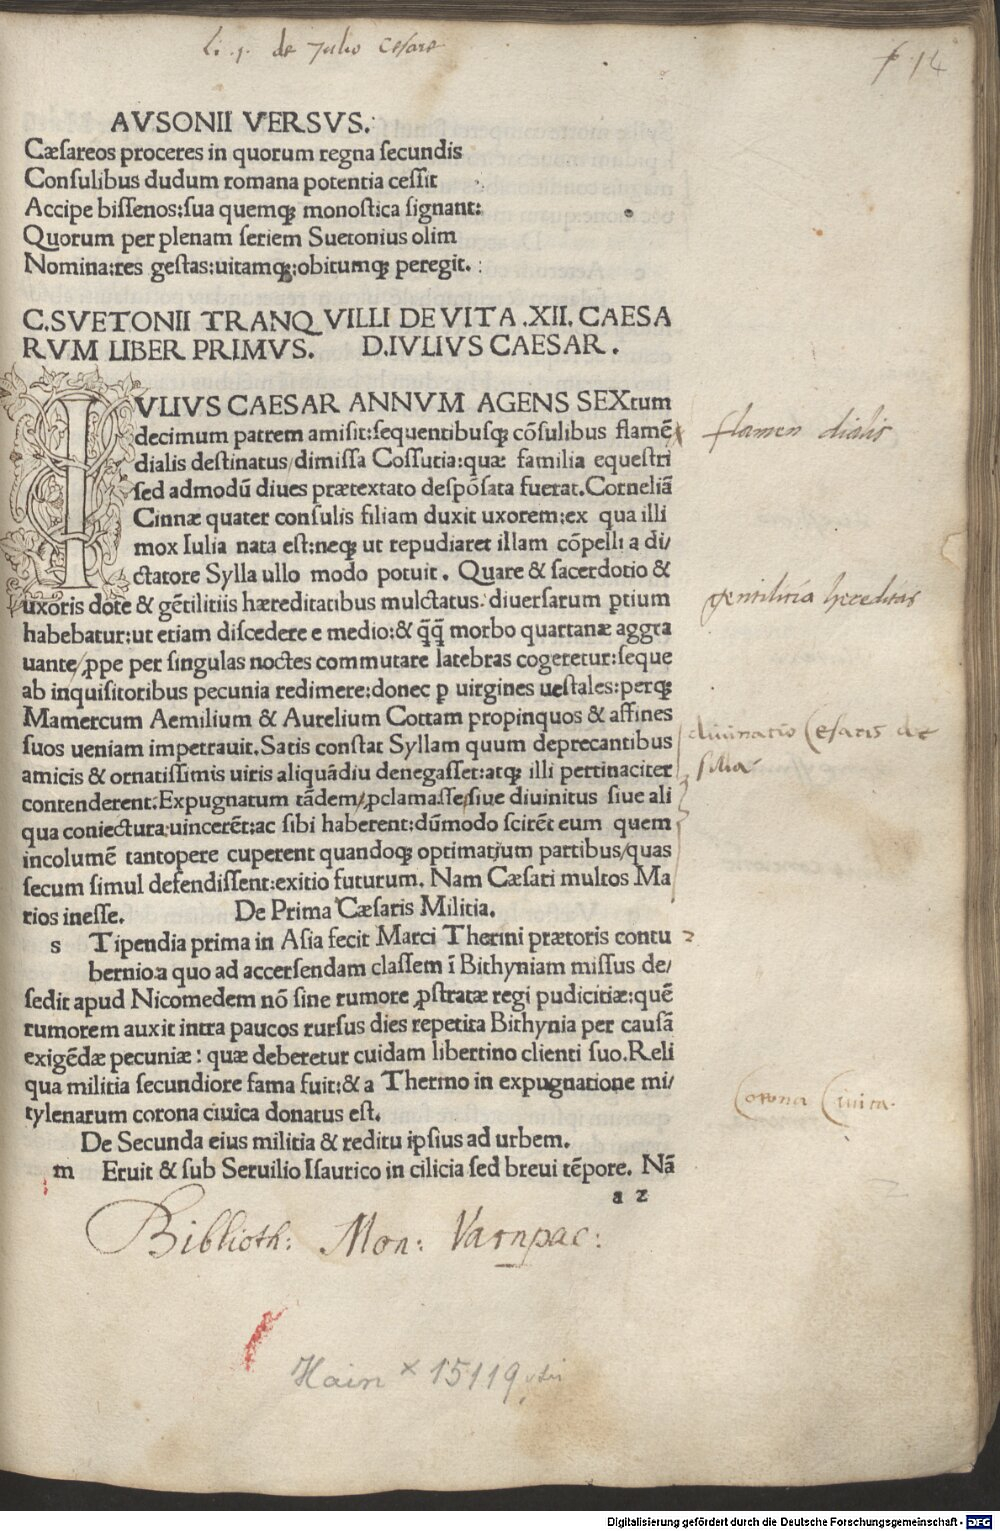 li. 1. de Julio Cesare
f 14
AVSONII VERSVS.
Cæsareos proceres in quorum regna secundis
Consulibus dudum romana potentia cessit
Accipe bissenos:sua quemqꝫ monostica signant:
Quorum per plenam seriem Suetonius olim
Nomina:res gestas:uitamqꝫ:obitumqꝫ peregit.
C.SVETONII TRANQVILLI DE VITA .XII. CAESA
RVM LIBER PRIMVS. D.IVLIVS CAESAR.
IVLIVS CAESAR ANNVM AGENS SEXtum
decimum patrem amisit:sequentibusqꝫ cõsulibus flamẽ
flamen dialis
dialis destinatus/dimissa Cossutia:quæ familia equestri
sed admodũ diues prætextato despõsata fuerat.Corneliã
Cinnæ quater consulis filiam duxit uxorem:ex qua illi
mox Iulia nata est:neqꝫ ut repudiaret illam cõpelli a di/
ctatore Sylla ullo modo potuit. Quare & sacerdotio &
uxoris dote & gẽtilitiis hæreditatibus mulctatus. diuersarum ꝑtium
gentilitia hereditas
habebatur:ut etiam discedere e medio:& q̃q̃ morbo quartanæ aggra
uante/ꝓpe per singulas noctes commutare latebras cogeretur:seque
ab inquisitoribus pecunia redimere:donec ꝑ uirgines uestales:perqꝫ
Mamercum Aemilium & Aurelium Cottam propinquos & affines
suos ueniam impetrauit.Satis constat Syllam quum deprecantibus
diuinatio Cesaris de
silla
amicis & ornatissimis uiris aliquãdiu denegasset:atqꝫ illi pertinaciter
contenderent.Expugnatum tãdem/ꝓclamasse/siue diuinitus siue ali
qua coniectura:uincerẽt:ac sibi haberent:dũmodo scirẽt eum quem
incolumẽ tantopere cuperent quandoqꝫ optimatium partibus/quas
secum simul defendissent:exitio futurum. Nam Cæsari multos Ma
rios inesse. De Prima Cæsaris Militia.
s Tipendia prima in Asia fecit Marci Thermi prætoris contu
bernio:a quo ad accersendam classem ĩ Bithyniam missus de/
sedit apud Nicomedem nõ sine rumore ꝓstratæ regi pudicitiæ:quẽ
rumorem auxit intra paucos rursus dies repetita Bithynia per causã
exigẽdæ pecuniæ: quæ deberetur cuidam libertino clienti suo.Reli
qua militia secundiore fama fuit:& a Thermo in expugnatione mi/
Corona Ciuica.
tylenarum corona ciuica donatus est.
De Secunda eius militia & reditu ipsius ad urbem.
m Eruit & sub Seruilio Isaurico in cilicia sed breui tẽpore. Nã
a 2
Biblioth: Mon: Varnpac:
Hain × 15119
Digitalisierung gefördert durch die Deutsche Forschungsgemeinschaft - DFG